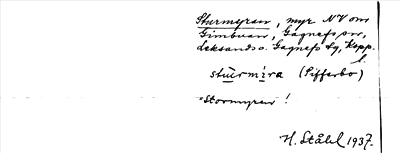 Sturmyran, myr NV om
Gimbuan, Gagnefs sn,
Leksands o. Gagnefs tg, Kopp.
l.
stūrmira (Sifferbo)
Stormyren!
H. Ståhl 1937.